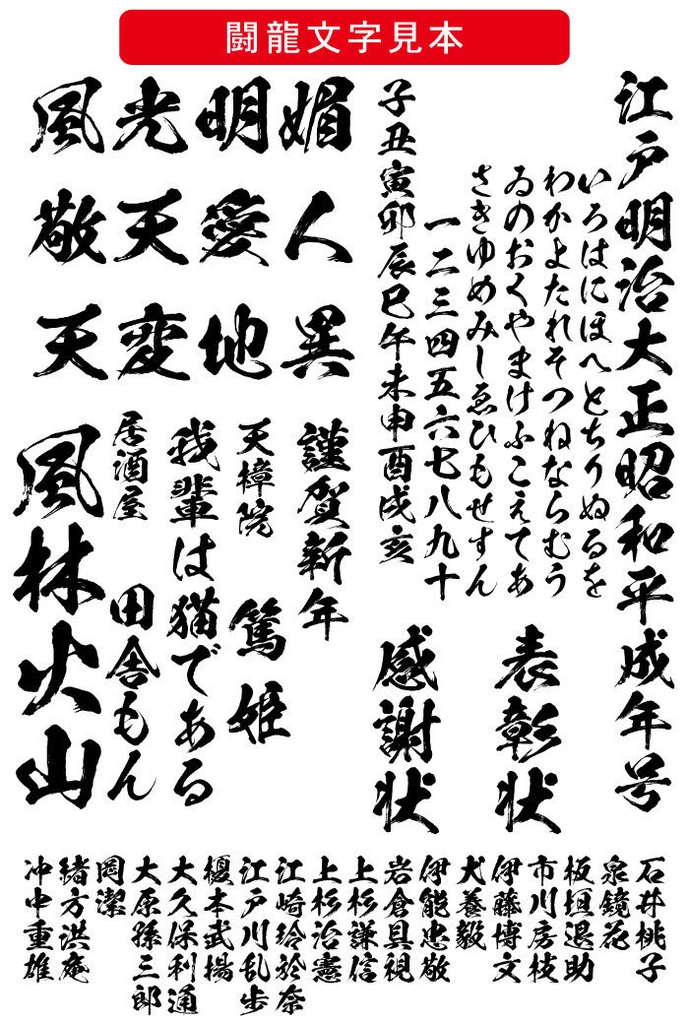 闘龍文字見本
江戸明治大正昭和平成年号
いろはにほへとちりぬるを
わかよたれそつねならむう
ゐのおくやまけふこえてあ
さきゆめみしゑひもせすん
一二三四五六七八九十
子丑寅卯辰巳午未申酉戌亥
表彰状
感謝状
風光明媚
敬天愛人
天変地異
謹賀新年
天樟院 篤姫
我輩は猫である
居酒屋 田舎もん
風林火山
石井桃子
泉鏡花
板垣退助
市川房枝
伊藤博文
犬養毅
伊能忠敬
岩倉具視
上杉謙信
上杉治憲
江崎玲於奈
江戸川乱歩
榎本武揚
大久保利通
大原孫三郎
岡潔
緒方洪庵
沖中重雄